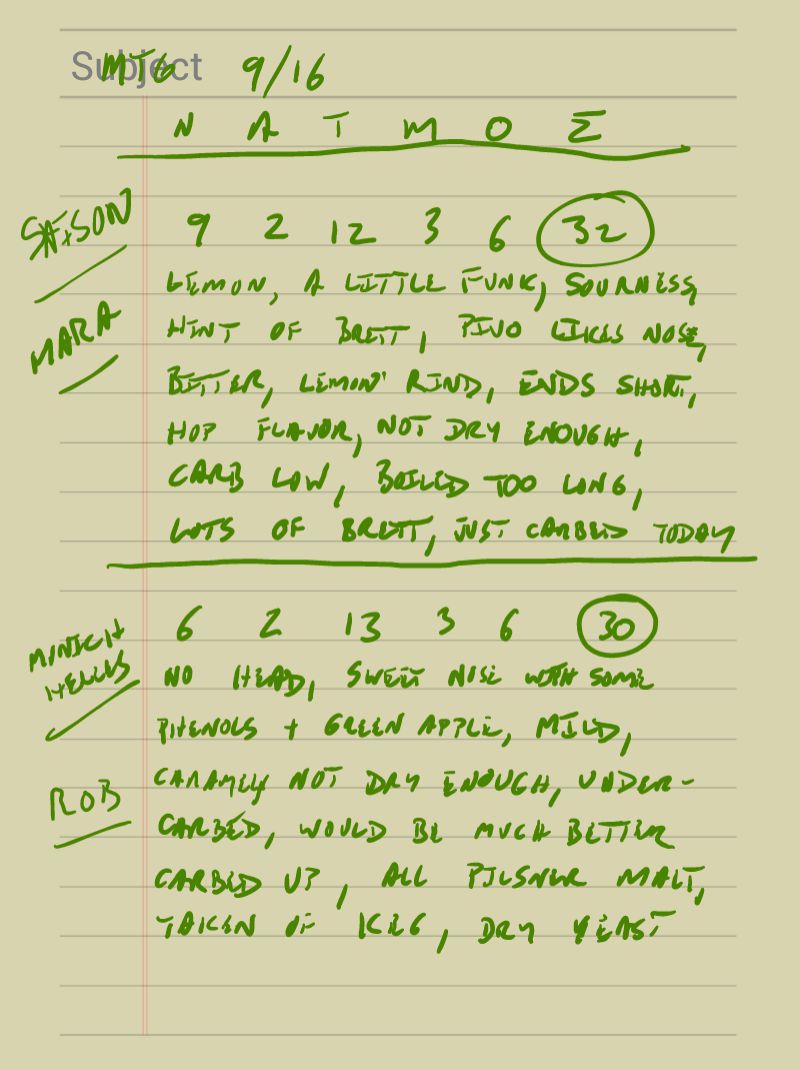 Subject
MTG 9/16
N A T M O Σ
SAISON
9 2 12 3 6 32
LEMON, A LITTLE FUNK, SOURNESS,
MARA
HINT OF BRETT, PINO LIKES NOSE,
BITTER, LEMON RIND, ENDS SHORT,
HOP FLAVOR, NOT DRY ENOUGH,
CARB LOW, BOILED TOO LONG,
LOTS OF BRETT, JUST CARBED TODAY
MINICH
HELLES
6 2 13 3 6 30
NO HEAD, SWEET NOSE WITH SOME
PHENOLS + GREEN APPLE, MILD,
ROB
CARAMELY NOT DRY ENOUGH, UNDER-
CARBED, WOULD BE MUCH BETTER
CARBED UP, ALL PILSNER MALT,
TAKEN OF KEG, DRY YEAST